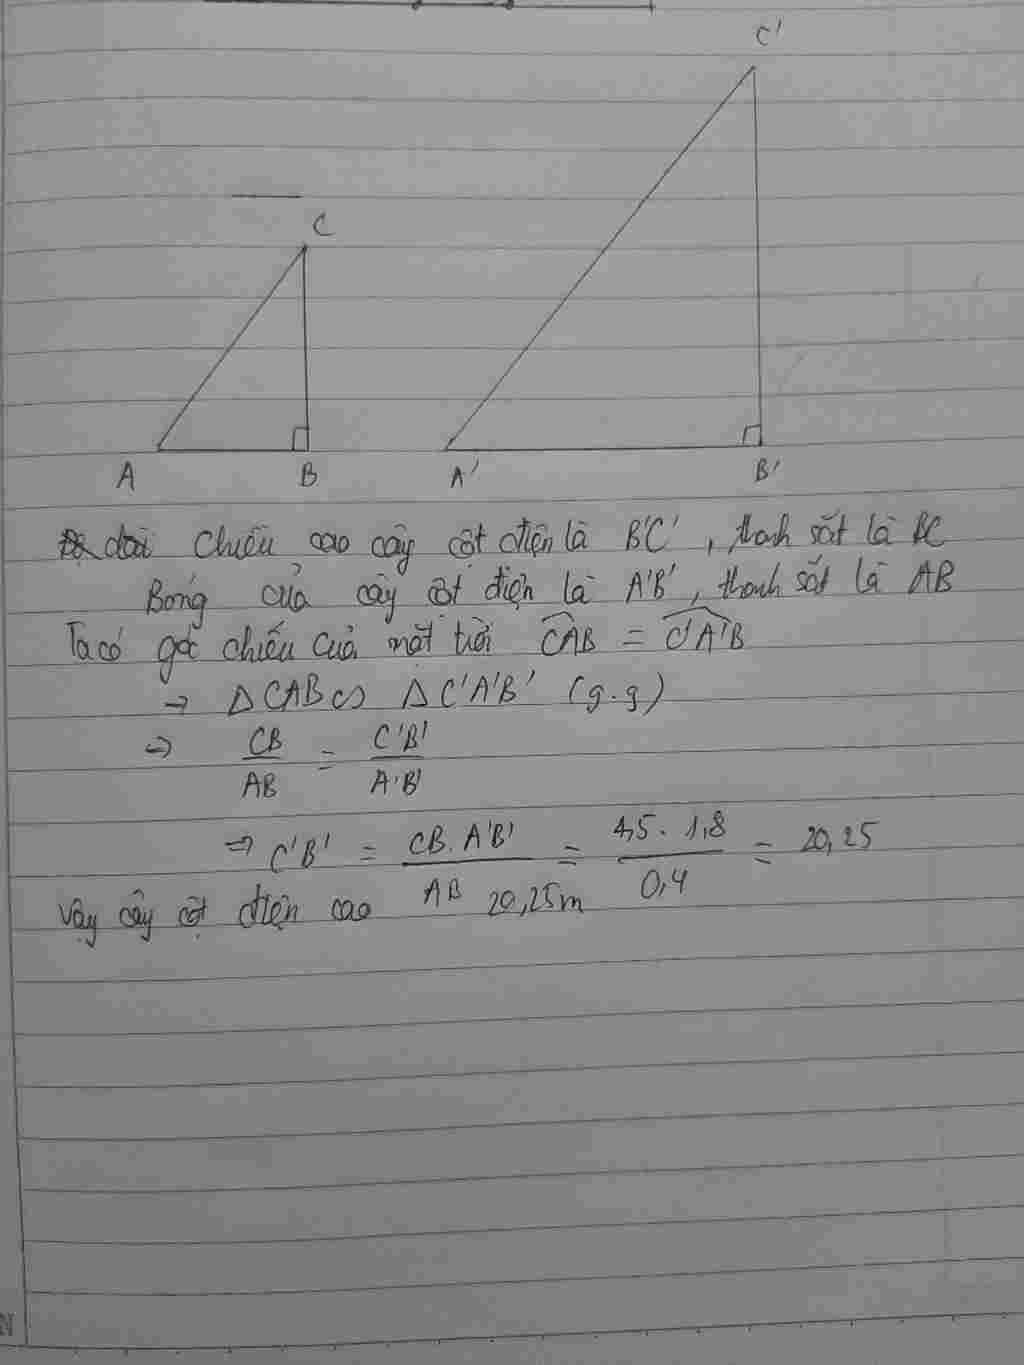 C'
C
A B A' B'
dài chiều cao cây cột điện là B'C', thanh sắt là BC
Bóng của cây cột điện là A'B', thanh sắt là AB
Ta có góc chiếu của mặt trời CAB = C'A'B
→ Δ CAB ∽ Δ C'A'B' (g.g)
⇒ CB/AB = C'B'/A'B'
⇒ C'B' = CB.A'B'/AB = 4,5.1,8/0,4 = 20,25
Vậy cây cột điện cao 20,25m
N